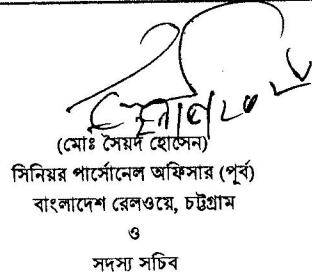 (মোঃ সৈয়দ হোসেন)
সিনিয়র পার্সোনেল অফিসার (পূর্ব)
বাংলাদেশ রেলওয়ে, চট্টগ্রাম
ও
সদস্য সচিব